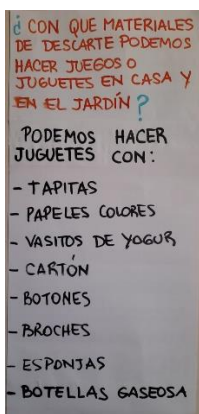 ¿ CON QUE MATERIALES
DE DESCARTE PODEMOS
HACER JUEGOS O
JUGUETES EN CASA Y
EN EL JARDÍN?
PODEMOS HACER
JUGUETES CON:
- TAPITAS
- PAPELES COLORES
- VASITOS DE YOGUR
- CARTÓN
- BOTONES
- BROCHES
- ESPONJAS
- BOTELLAS GASEOSA